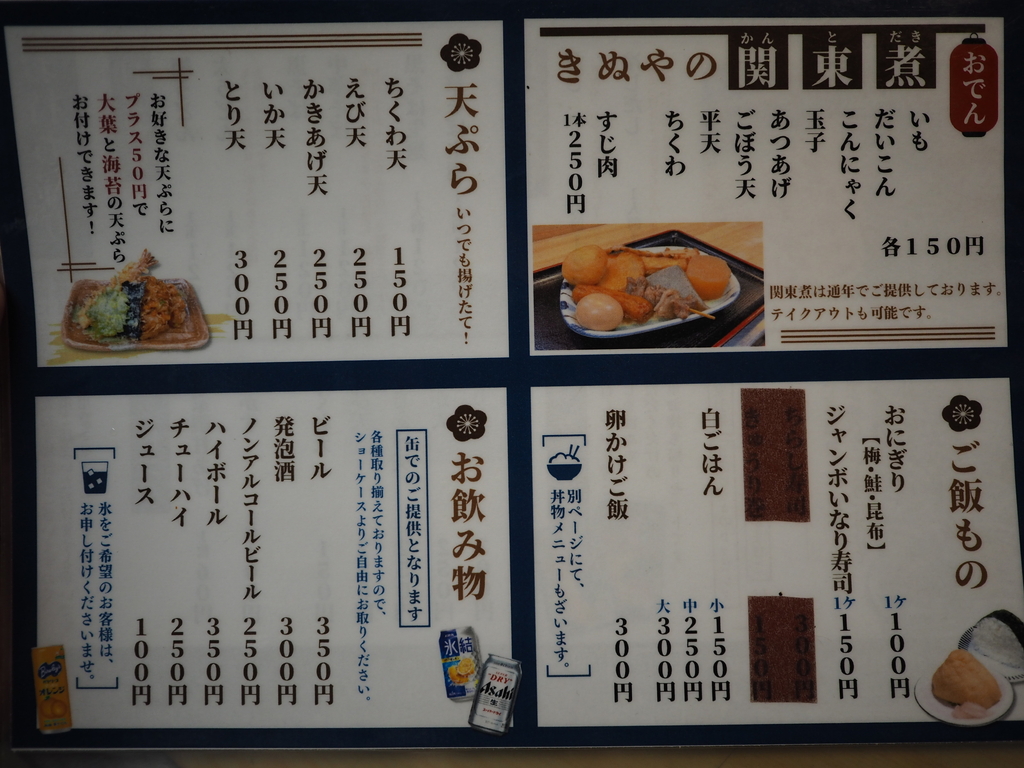 おでん
きぬやの関東煮
かんとだき
いも
だいこん
こんにゃく
玉子
あつあげ
ごぼう天
平天
ちくわ
各150円
すじ肉
1本250円
関東煮は通年でご提供しております。
テイクアウトも可能です。
天ぷら いつでも揚げたて!
ちくわ天 150円
えび天 250円
かきあげ天 250円
いか天 250円
とり天 300円
お好きな天ぷらに
プラス50円で
大葉と海苔の天ぷら
お付けできます!
ご飯もの
おにぎり 1ケ100円
【梅・鮭・昆布】
ジャンボいなり寿司 1ケ150円
ちらし寿司 300円
きゅうり巻 150円
白ごはん 小150円
中250円
大300円
卵かけご飯 300円
別ページにて、
丼物メニューもざいます。
お飲み物
缶でのご提供となります
各種取り揃えておりますので、
ショーケースよりご自由にお取りください。
ビール 350円
発泡酒 300円
ノンアルコールビール 250円
ハイボール 350円
チューハイ 250円
ジュース 100円
氷をご希望のお客様は、
お申し付けくださいませ。
氷結
DRY
Asahi
生
オレンジ